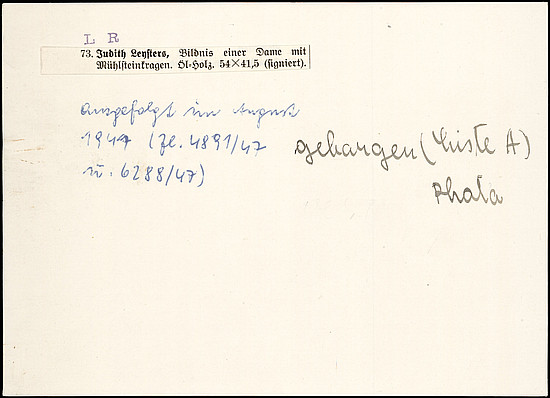 L R
73. Judith Leysters, Bildnis einer Dame mit
Mühlsteinkragen. Öl-Holz. 54×41,5 (signiert).
ausgefolgt im August
1947 (Zl. 4891/47
u. 6288/47)
geborgen (Liste A)
Photo